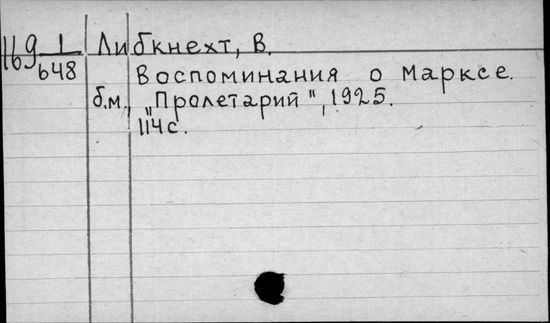 169 1/648 Либкнехт, В.
Воспоминания о Марксе.
б.м., „Пролетарий", 1925.
114с.